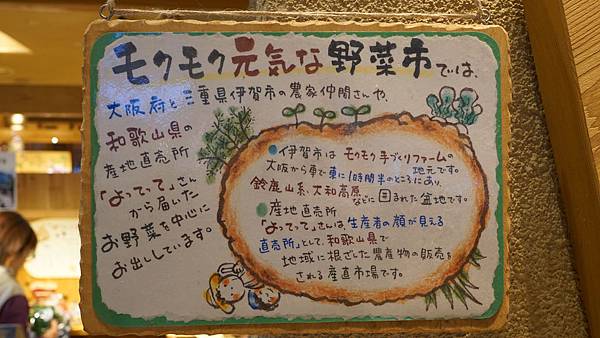 モクモク元気な野菜市では、
大阪府と三重県伊賀市の農家仲間さんや、
和歌山県の
産地直売所
「よってって」さん
から届いた
お野菜を中心に
お出ししています。
●伊賀市は モクモク手づくりファームの
地元です。
大阪から車で車に1時間半のところにあり、
鈴鹿山系、大和高原
などに囲まれた盆地です。
●産地直売所
「よってって」さんは、生産者の顔が見える
直売所」として、和歌山県で
地域に根ざした農産物の販売を
される産直市場です。